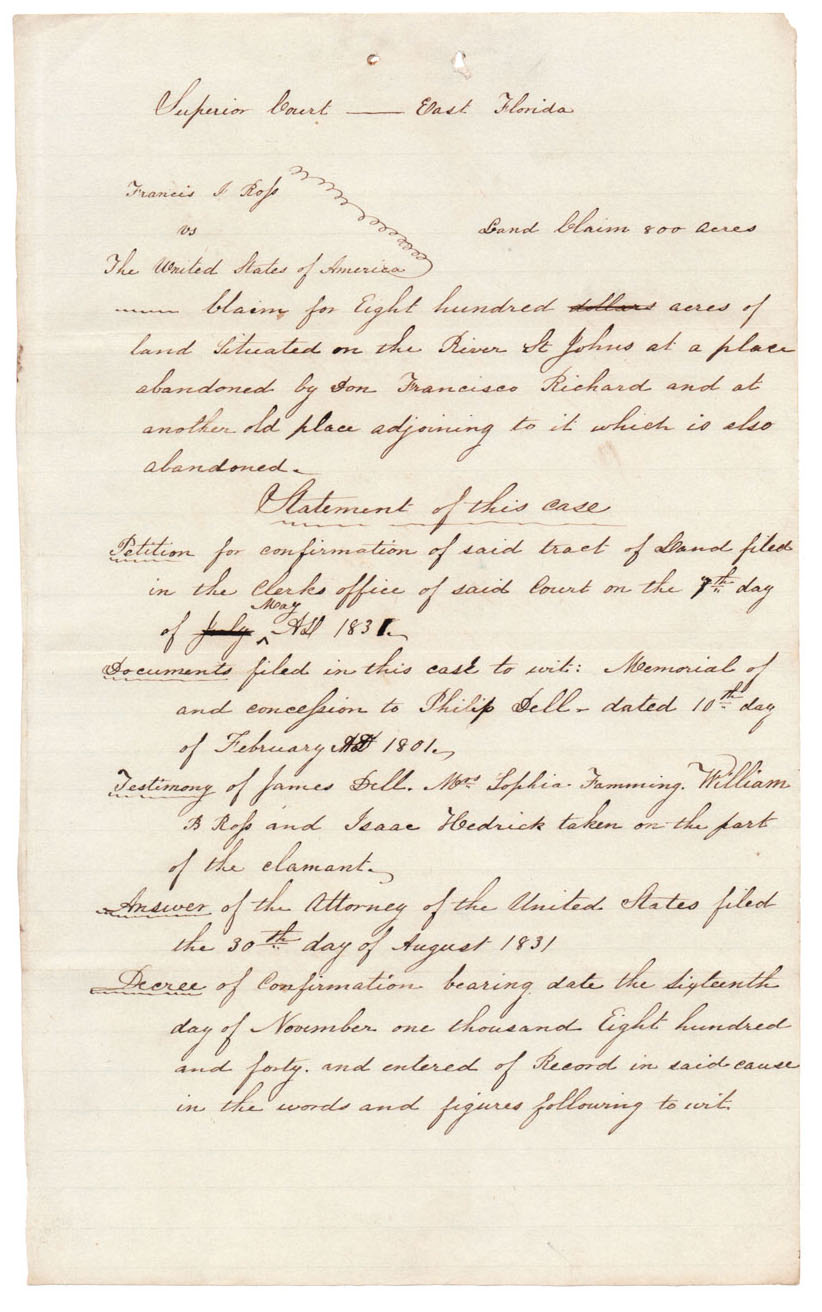 Superior Court — East Florida
Francis J Ross
vs
Land Claim 800 acres
The United States of America
Claim for Eight hundred dollars acres of
land Situated on the River St Johns at a place
abandoned by Don Francisco Richard and at
another old place adjoining to it which is also
abandoned.
Statement of this case
Petition for confirmation of said tract of Land filed
in the Clerks office of said Court on the 7th day
of July ^ May AD 1831.
Documents filed in this case to wit: Memorial of
and concession to Philip Dell - dated 10th day
of February AD 1801.
Testimony of James Dell. Mrs Sophia Famming. William
B Ross and Isaac Hedrick taken on the part
of the clamant.
Answer of the Attorney of the United States filed
the 30th day of August 1831
Decree of Confirmation bearing date the sixteenth
day of November one thousand Eight hundred
and forty. and entered of Record in said cause
in the words and figures following to wit.